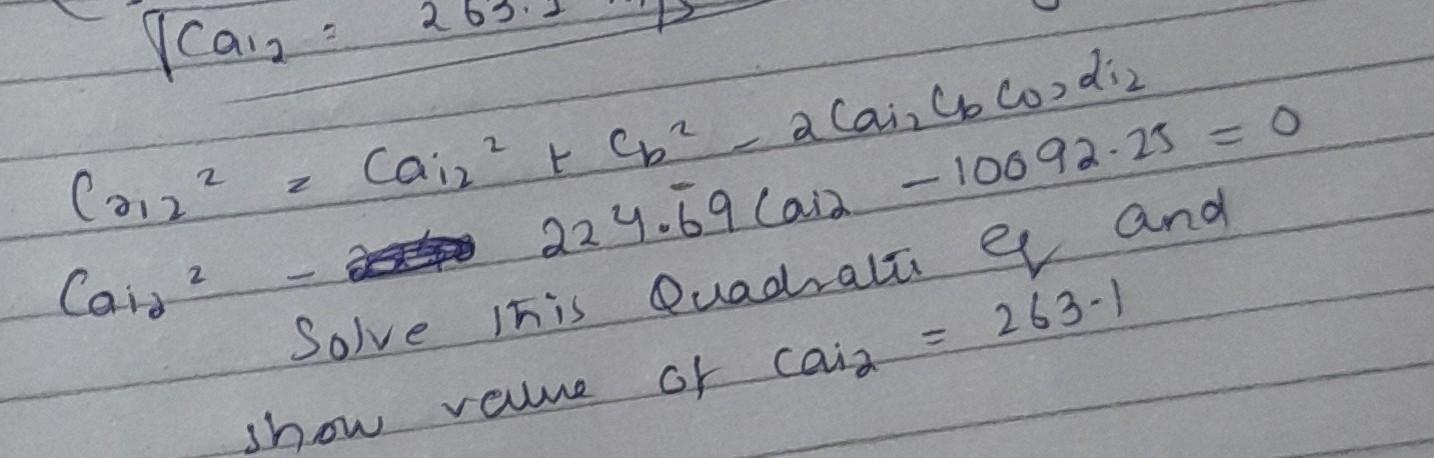 Cai2 = 263.1
Cai2² = Cai2² + Cb² - 2Cai2 Cb Cos di2
Cai2² - 224.69 Cai2 - 10092.25 = 0
Solve this Quadratic eq and
show value of Cai2 = 263.1